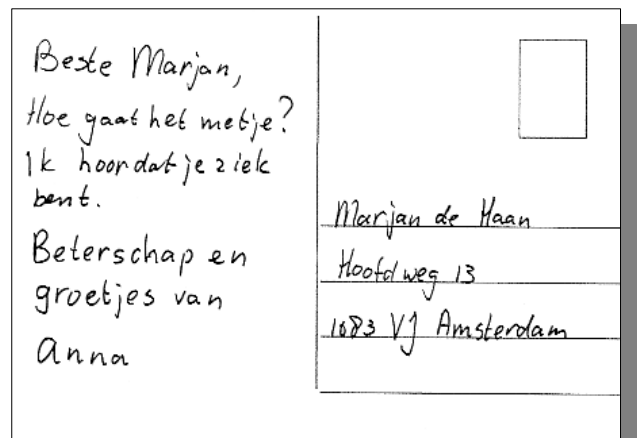 Beste Marjan,
Hoe gaat het met je?
Ik hoor dat je ziek
bent.
Beterschap en
groetjes van
Anna
Marjan de Haan
Hoofdweg 13
1083 VJ Amsterdam